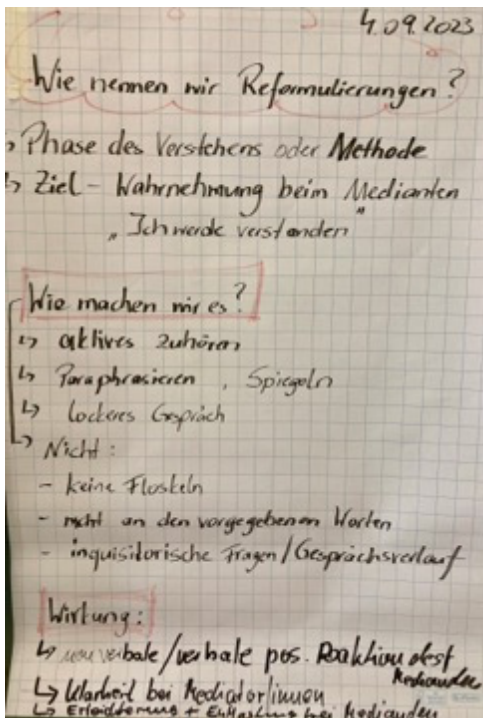 4.09.2023
Wie nennen wir Reformulierungen?
↳ Phase des Verstehens oder Methode
↳ Ziel - Wahrnehmung beim Medianten
„Ich werde verstanden"
Wie machen wir es?
↳ aktives zuhören
↳ Paraphrasieren, Spiegeln
↳ lockeres Gespräch
↳ Nicht:
- keine Floskeln
- nicht an den vorgegebenen Worten
- inquisitorische Fragen/Gesprächsverlauf
Wirkung:
↳ nonverbale/verbale pos. Reaktion des
Medianden
↳ Klarheit bei Mediator/innen
↳ Erleichterung + Entlastung bei Medianden